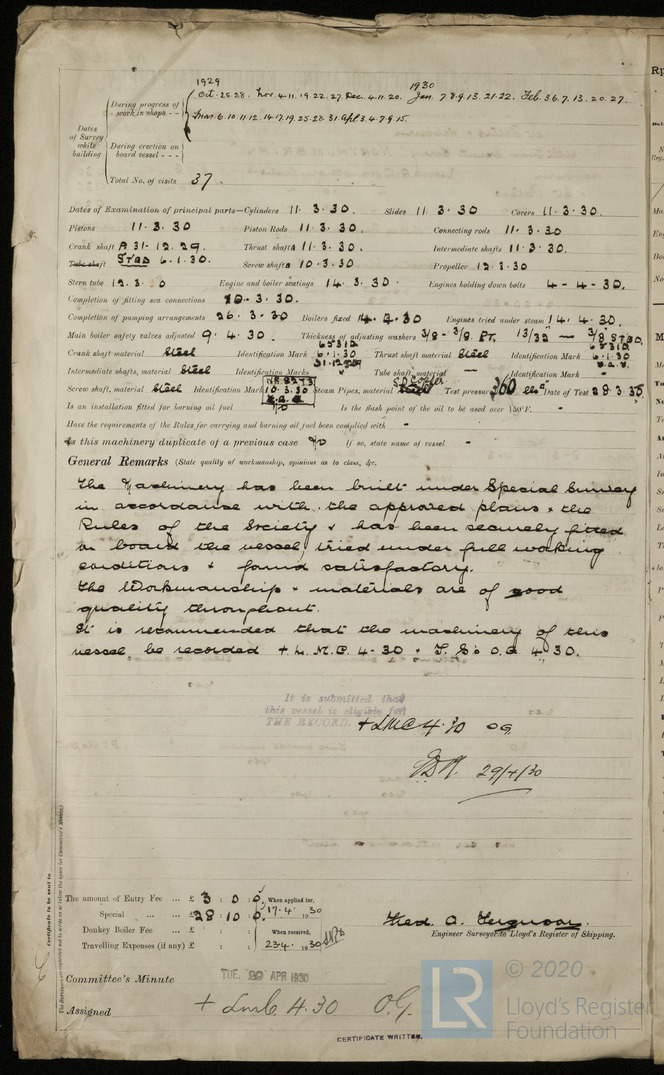 1929
1930
During progress of work in shops - - Oct. 25. 28. Nov. 4. 11. 19. 22. 27. Dec. 4. 11. 20. Jan. 7. 8. 9. 13. 21. 22. Feb. 3. 6. 7. 13. 20. 27.
Mar. 6. 10. 11. 12. 14. 17. 19. 25. 28. 31. Apl. 3. 4. 7. 9. 15.
Dates of Survey while building
During erection on board vessel - - -
Total No. of visits 37.
Dates of Examination of principal parts—Cylinders 11. 3. 30. Slides 11. 3. 30 Covers 11. 3. 30.
Pistons 11. 3. 30 Piston Rods 11. 3. 30. Connecting rods 11. 3. 30
Crank shaft 31. 12. 29. Thrust shafts 11. 3. 30. Intermediate shafts 11. 3. 30.
Tube shaft STBD 6. 1. 30. Screw shafts 10. 3. 30 Propeller 12. 3. 30
Stern tube 12. 3. 30 Engine and boiler seatings 14. 3. 30. Engines holding down bolts 4 - 4 - 30.
Completion of fitting sea connections 10. 3. 30.
Completion of pumping arrangements 26. 3. 30 Boilers fixed 14. 3. 30 Engines tried under steam 14. 4. 30.
Main boiler safety valves adjusted 9. 4. 30. Thickness of adjusting washers 3/8 - 3/8 PT. 13/32 — 3/8 STBD.
Crank shaft material Steel Identification Mark 6. 1. 30 Thrust shaft material Steel Identification Mark 6. 1. 30
Intermediate shafts, material Steel Identification Marks 31. 12. 29 Tube shaft, material — Identification Mark -
Screw shaft, material Steel Identification Mark 10. 3. 30 Steam Pipes, material S.D. Copper Test pressure 360 lbs Date of Test 28. 3. 30
Is an installation fitted for burning oil fuel No Is the flash point of the oil to be used over 150°F. -
Have the requirements of the Rules for carrying and burning oil fuel been complied with -
Is this machinery duplicate of a previous case No If so, state name of vessel -
General Remarks (State quality of workmanship, opinions as to class, &c.
The Machinery has been built under Special Survey
in accordance with the approved plans & the
Rules of the Society & has been securely fitted
on board the vessel, tried under full working
conditions & found satisfactory.
The Workmanship & materials are of good
quality throughout.
It is recommended that the machinery of this
vessel be recorded + L.M.C. 4-30 & T.S's O.G. 4.30.
It is submitted that
this vessel is eligible for
THE RECORD. + LMC 4.30 OG
29/4/30
Certificate to be sent to
The amount of Entry Fee ... £ 3 : 0 : 0. When applied for,
Special ... ... £ 28 : 10 : 0. 17.4 1930
Donkey Boiler Fee ... £ : : When received,
Travelling Expenses (if any) £ : : 23.4. 1930
Fred. A. Ferguson.
Engineer Surveyor to Lloyd's Register of Shipping.
Committee's Minute TUE. 29 APR 1930
Assigned + LMC 4.30 O.G.
CERTIFICATE WRITTEN.
LR
© 2020
Lloyd's Register
Foundation